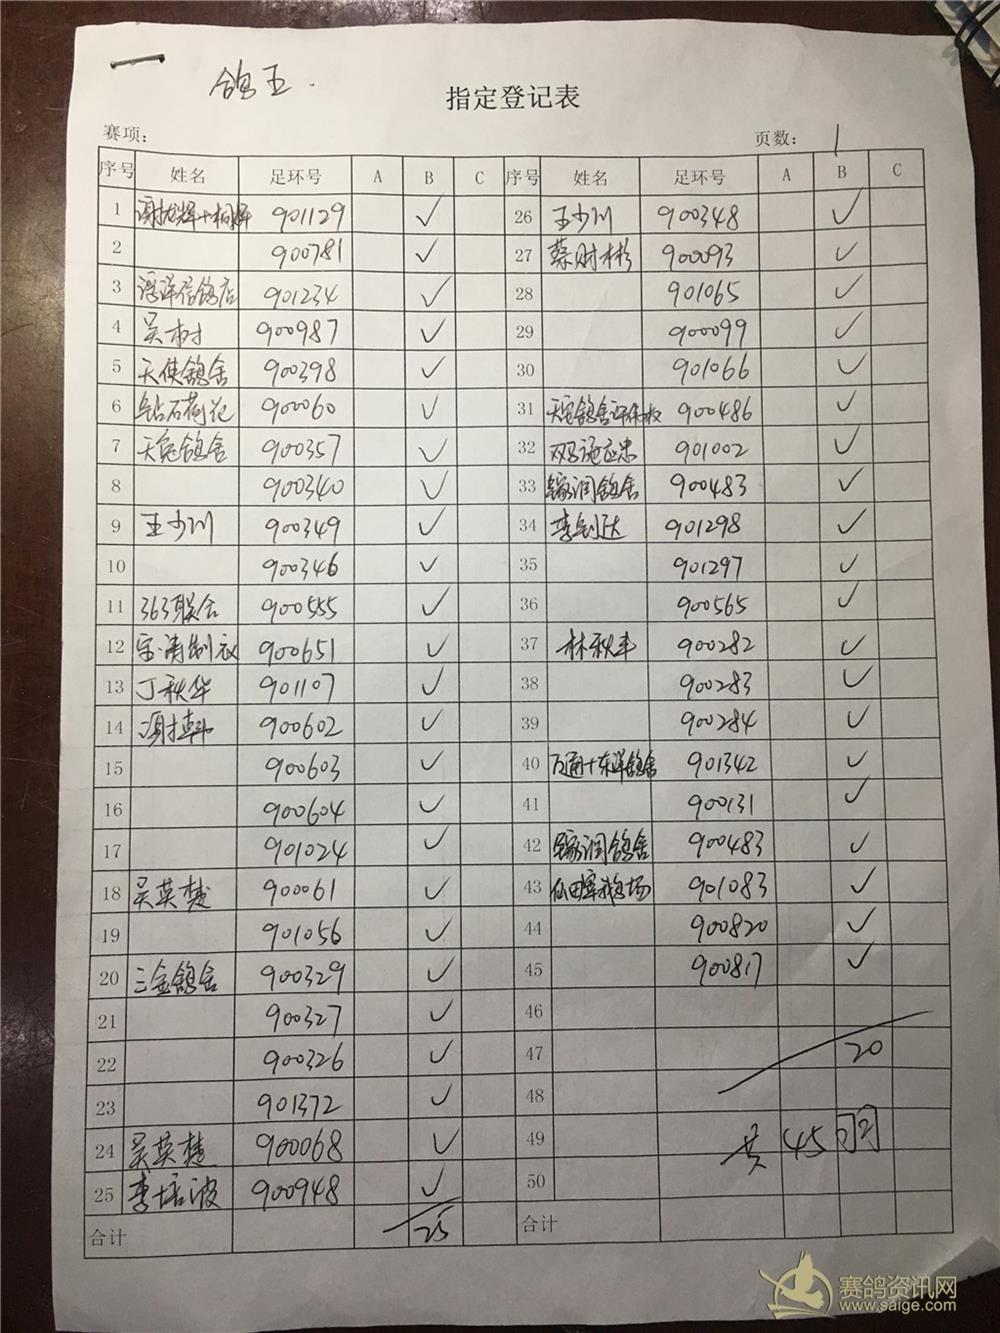 鸽王.
指定登记表
赛项：
页数： 1
序号 姓名 足环号 A B C 序号 姓名 足环号 A B C
1 901129 ✓ 26 王少川 900348 ✓
2 900781 ✓ 27 蔡财彬 900093 ✓
3 浮洋信鸽店 901234 ✓ 28 901065 ✓
4 吴树 900987 ✓ 29 900099 ✓
5 天使鸽舍 900398 ✓ 30 901066 ✓
6 钻石荷花 900060 ✓ 31 天宠鸽舍 900486 ✓
7 天宠鸽舍 900357 ✓ 32 901002 ✓
8 900340 ✓ 33 润鸽舍 900483 ✓
9 王少川 900349 ✓ 34 李钊达 901298 ✓
10 900346 ✓ 35 901297 ✓
11 363联合 900555 ✓ 36 900565 ✓
12 制衣 900651 ✓ 37 林秋丰 900282 ✓
13 丁秋华 901107 ✓ 38 900283 ✓
14 900602 ✓ 39 900284 ✓
15 900603 ✓ 40 万通+东洋鸽舍 901342 ✓
16 900604 ✓ 41 900131 ✓
17 901024 ✓ 42 润鸽舍 900483 ✓
18 吴英楚 900061 ✓ 43 901083 ✓
19 901056 ✓ 44 900820 ✓
20 三金鸽舍 900329 ✓ 45 900817 ✓
21 900327 ✓ 46
22 900326 ✓ 47 20
23 901372 ✓ 48
24 吴英楚 900068 ✓ 49 共45羽
25 李培波 900948 ✓ 50
合计 25 合计
赛鸽资讯网
www.saige.com